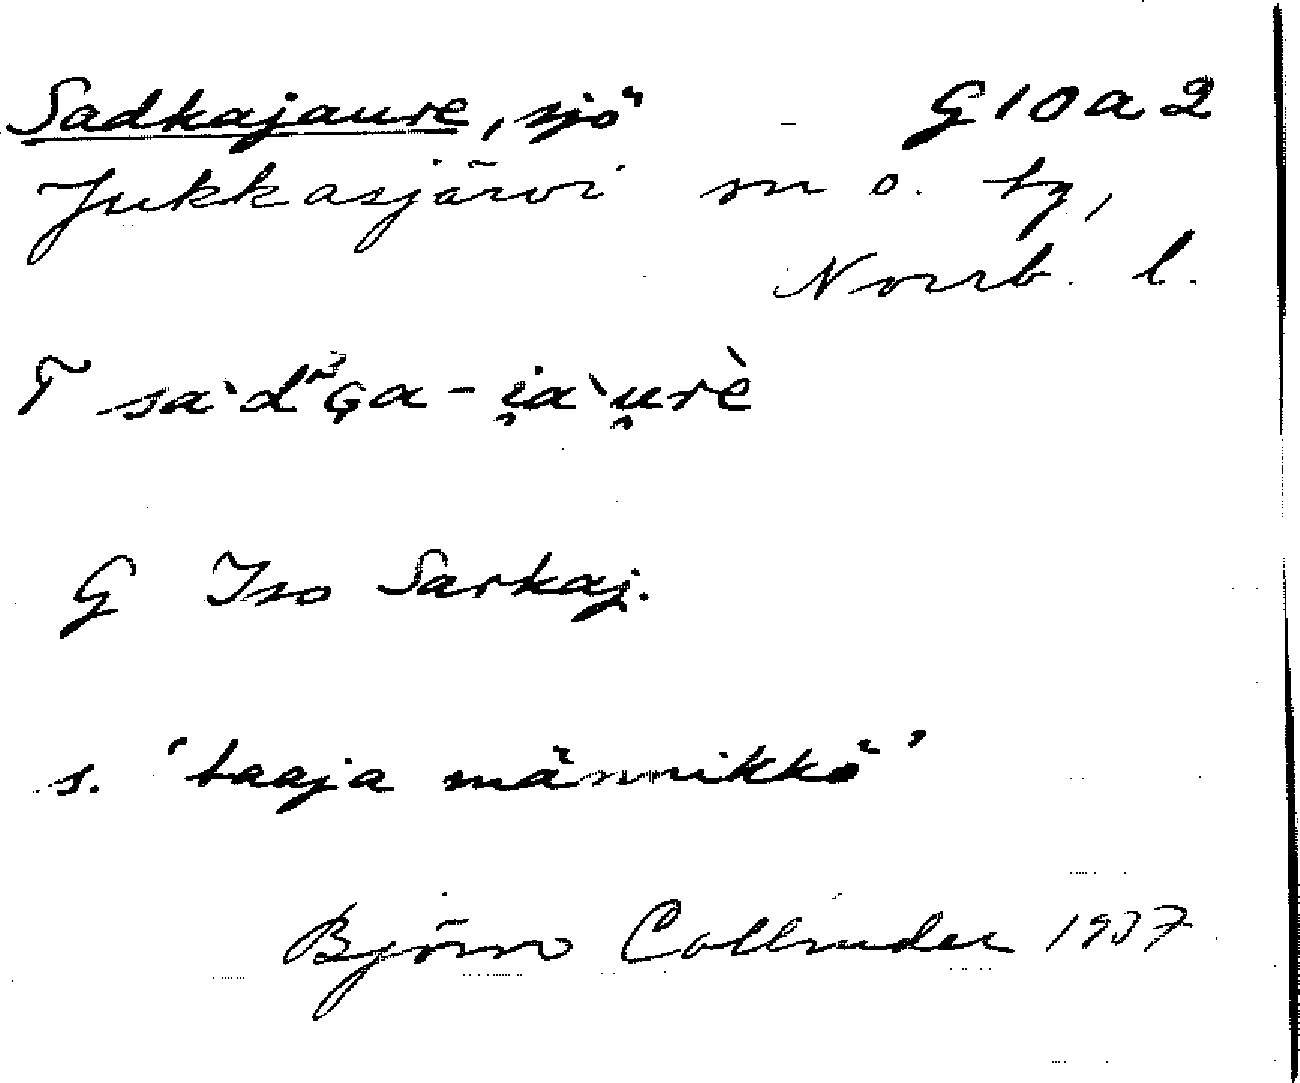 Sadkajaure, sjö – G 10 a 2
Jukkasjärvi sn o. tg,
Norrb. l.
T sàd̀ʒ́ga - i̯a`u̯rè
G Iso Sarkaj.
s. 'taaja männikkö'
Björn Collinder 1937